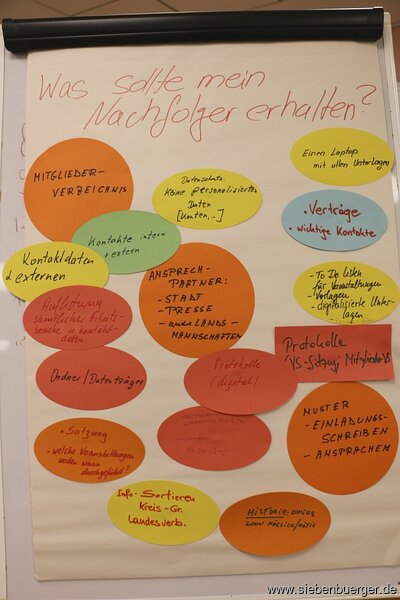 Was sollte mein
Nachfolger erhalten?
MITGLIEDER-
VERZEICHNIS
Datenschutz:
Keine personalisierte
Daten
[Konten,..]
Einen Laptop
mit allen Unterlagen
• Verträge
• wichtige Kontakte
Kontakte intern
+ extern
Kontaktdaten
+ externen
ANSPRECH-
PARTNER:
- STADT
- PRESSE
- andere LANDS-
MANNSCHAFTEN
- To Do Listen
für Veranstaltungen
- Vorlagen
- digitalisierte Unter-
lagen
Auflistung
sämtlicher Arbeits-
bereiche m. Kontakt-
daten
Protokolle
VS-Sitzung, Mitglieder
Protokolle
(digital)
Ordner/Datenträger
MUSTER
- EINLADUNGS-
SCHREIBEN
- ANSPRACHEN
• Satzung
• welche Veranstaltungen
werden wann
durchgeführt?
- TO DO LISTE
Info - Sortieren
Kreis-Gr.
Landesverb.
HISTORIE: CHRONIK
wenn möglich/nötig
www.siebenbuerger.de